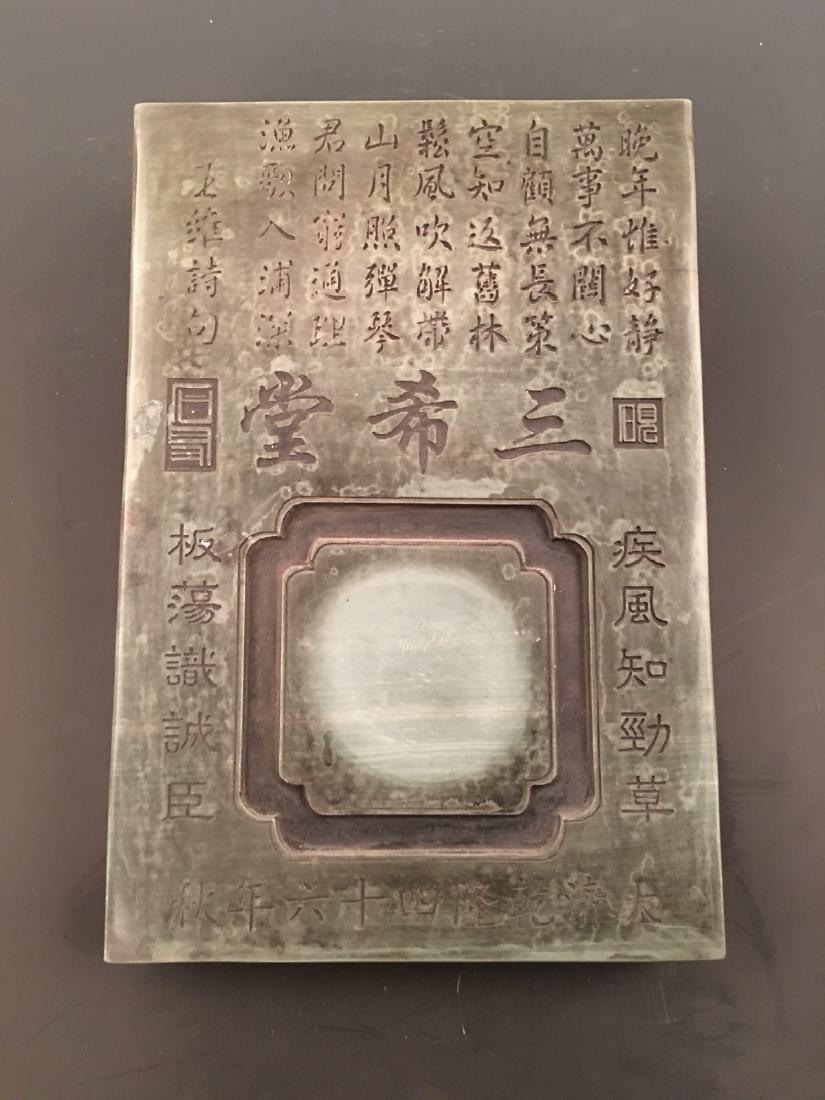 晚年惟好静
萬事不關心
自顧無長策
空知返舊林
鬆風吹解帶
山月照彈琴
君問窮通理
漁歌入浦深
王維詩句
三希堂
疾風知勁草
板蕩識誠臣
大清乾隆四十六年秋